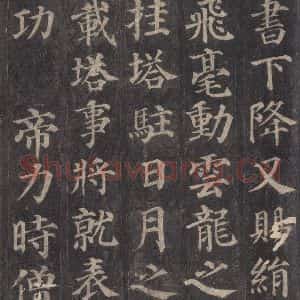 書下降又賜絹
飛毫動雲龍之
挂塔駐日月之
載塔事將就表
功 帝力時僧